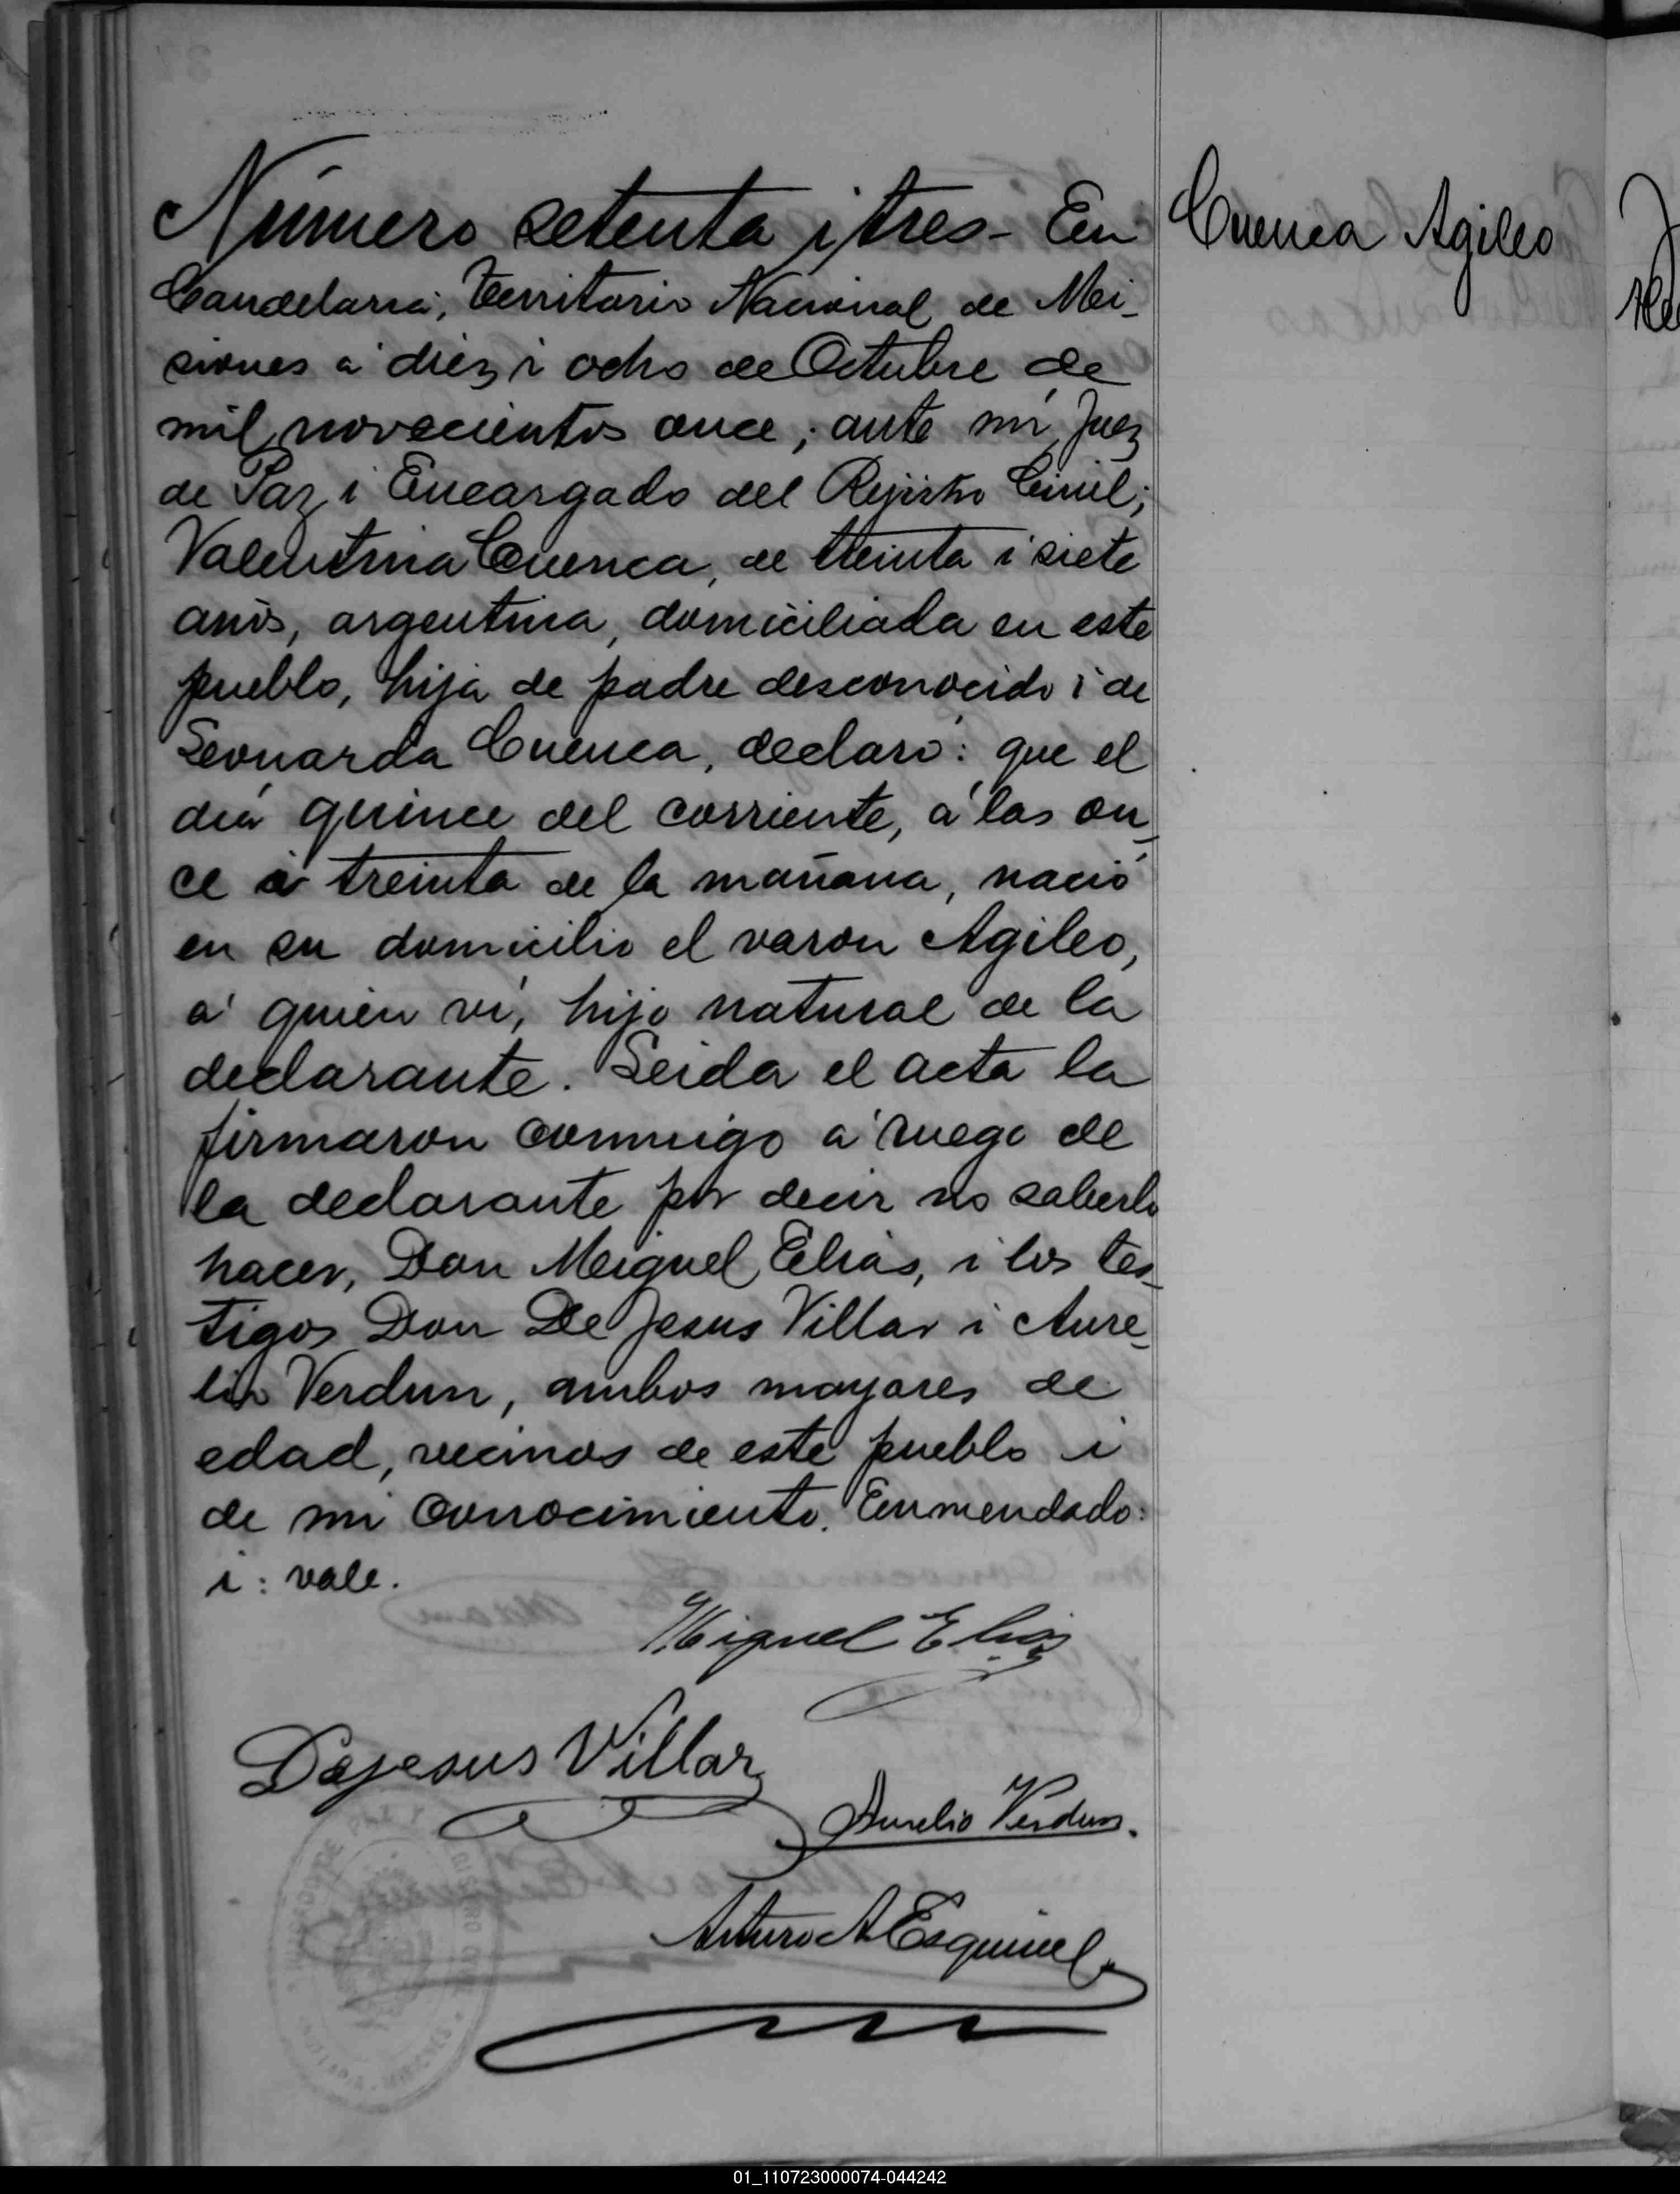 Número setenta i tres - En
Cuenca Agileo
Candelaria, Territorio Nacional de Mi-
siones a diez i ocho de Octubre de
mil novecientos once; ante mí, Juez
de Paz i Encargado del Rejistro Civil;
Valentina Cuenca, de treinta i siete
años, argentina, domiciliada en este
pueblo, hija de padre desconocido i de
Leonarda Cuenca, declaró: que el
día quince del corriente, á las on-
ce i treinta de la mañana, nació
en su domicilio el varon Agileo,
á quien ví, hijo natural de la
declarante. Leida el acta la
firmaron conmigo á ruego de
la declarante por decir no saberlo
hacer, Don Miguel Elias, i los tes-
tigos Don De Jesus Villar i Aure-
lio Verdun, ambos mayores de
edad, vecinos de este pueblo i
de mi conocimiento. Enmendado:
i: vale.
Miguel Elias
Dejesus Villar
Aurelio Verdun.
Arturo A Esquivel
01_110723000074-044242